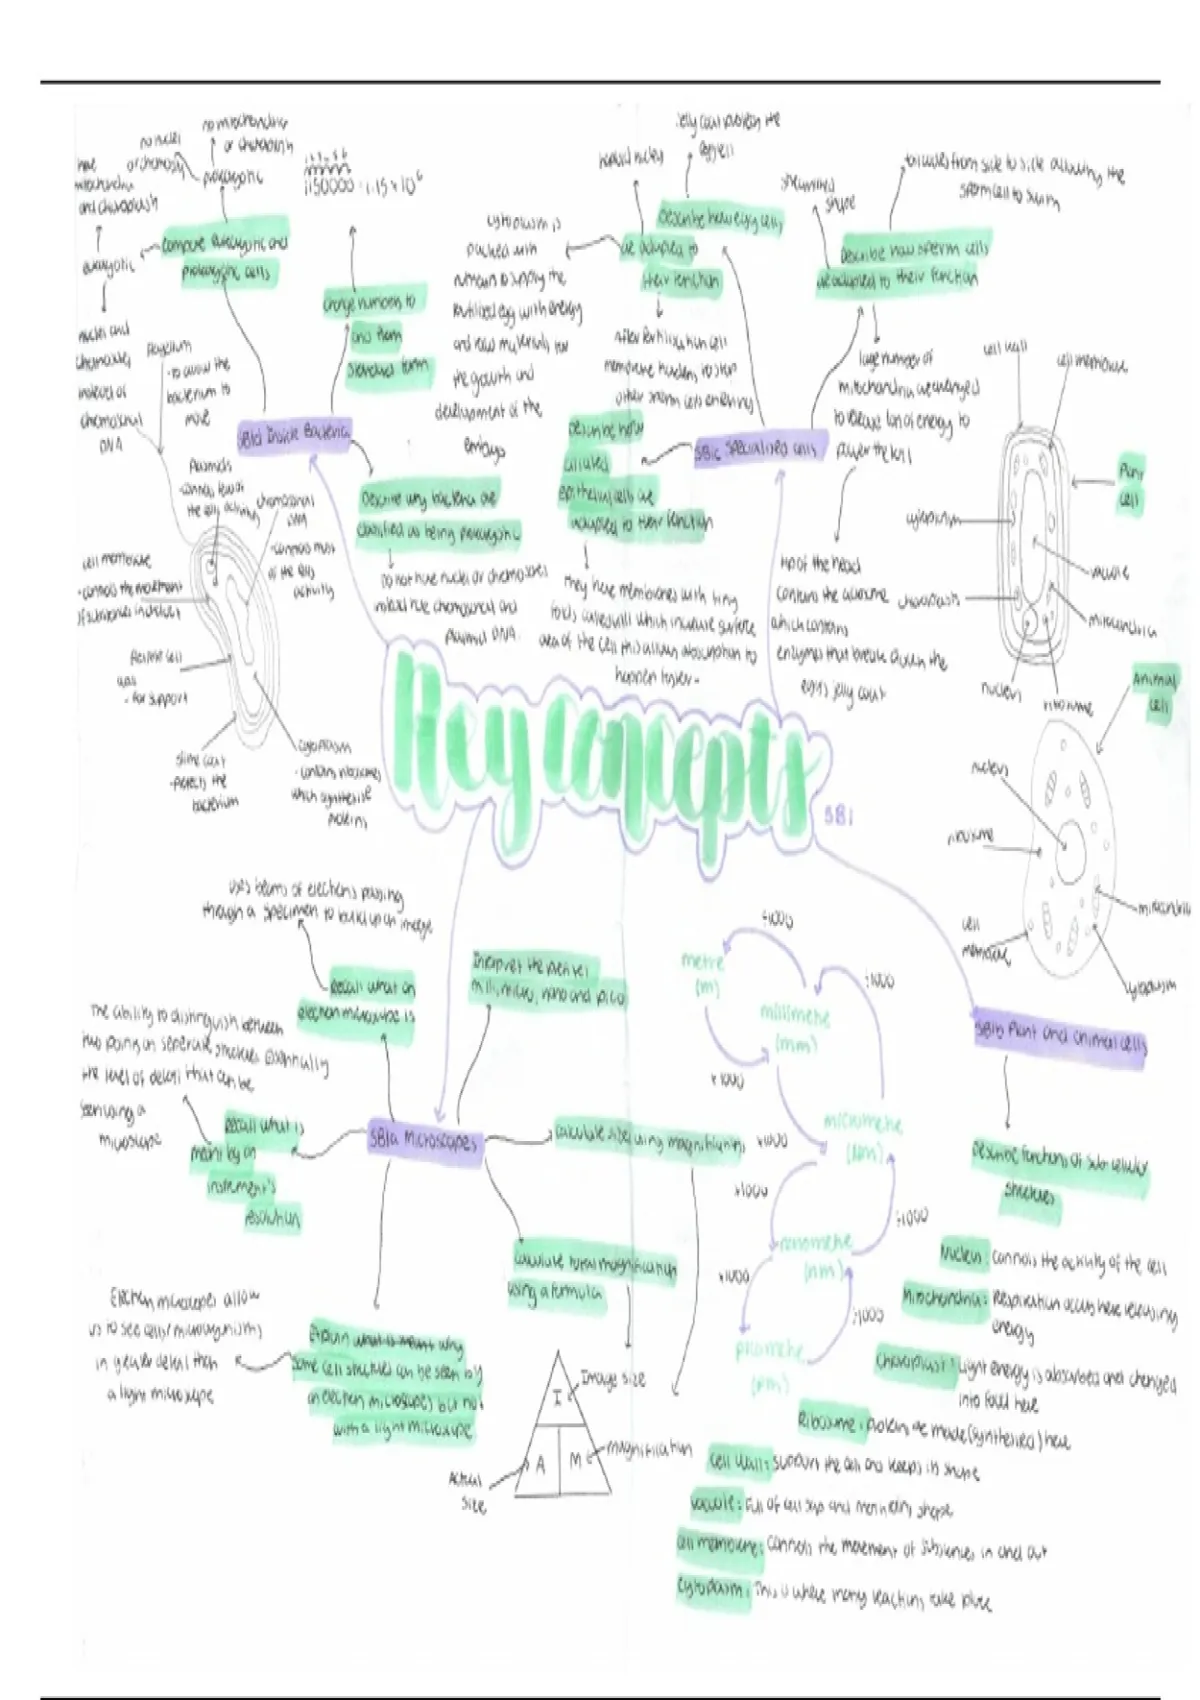 Key concepts
SB1
SB1d Inside Bacteria
compare eukaryotic and
prokaryotic cells
prokaryotic
no mitochondria
or chloroplasts
no nuclei
eukaryotic
have
mitochondria
and chloroplasts
nuclei and
chromosomes
instead of
chromosomal
DNA
change numbers to
and from
standard form
1150000 = 1.15 × 10⁶
Describe why bacteria are
classified as being prokaryotic
Do not have nuclei or chromosomes
instead have chromosomal and
Plasmid DNA.
flagellum
- to allow the
bacterium to
move
Plasmids
- controls few of
the cells activities
chromosomal
DNA
- controls most
of the cells
activity
cell membrane
- controls the movement
of substances in and out
flexible cell
wall
- for support
slime coat
- protects the
bacterium
cytoplasm
- contains ribosomes
which synthesise
proteins
SB1c Specialised cells
Describe how egg cells
are adapted to
their function
haploid nucleus
jelly coat protects the
egg cell
cytoplasm is
packed with
nutrients to supply the
fertilized egg with energy
and raw materials for
the growth and
development of the
embryo
After fertilisation cell
membrane hardens to stop
other sperm cells entering
Describe how sperm cells
are adapted to their function
streamlined
shape
tail waves from side to side allowing the
sperm cell to swim
large number of
mitochondria are arranged
to release lots of energy to
power the tail
tip of the head
contains the acrosome
which contains
enzymes that break down the
egg's jelly coat
Describe how
ciliated
epithelial cells are
adapted to their function
They have membranes with tiny
folds called villi which increase surface
area of the cell this allows absorption to
happen faster.
Plant
cell
cell wall
cell membrane
cytoplasm
vacuole
chloroplasts
mitochondria
nucleus
ribosome
Animal
cell
nucleus
ribosome
cell
membrane
mitochondria
cytoplasm
SB1b Plant and animal cells
Describe functions of sub-cellular
structures
Nucleus: Controls the activity of the cell
Mitochondria: Respiration occurs here releasing
energy
Chloroplast: Light energy is absorbed and changed
into food here
Ribosome: proteins are made (synthesised) here
cell wall: supports the cell and keeps its shape
vacuole: Full of cell sap and maintains shape
cell membrane: Controls the movement of substances in and out
cytoplasm: This is where many reactions take place
SB1a Microscopes
Recall what an
electron microscope is
uses beams of electrons passing
through a specimen to build up an image
Interpret the prefixes
milli, micro, nano and pico
Recall what is
meant by an
instrument's
resolution
The ability to distinguish between
two points on separate structures essentially
the level of detail that can be
seen using a
microscope
calculate sizes using magnifications
calculate total magnification
using a formula
Explain what is meant why
some cell structures can be seen by
an electron microscopes but not
with a light microscope
Electron microscopes allow
us to see cells/microorganisms
in greater detail than
a light microscope
I
A
M
Image size
Actual
size
magnification
metre
(m)
÷1000
×1000
millimetre
(mm)
÷1000
×1000
micrometre
(µm)
×1000
÷1000
nanometre
(nm)
×1000
÷1000
picometre
(pm)